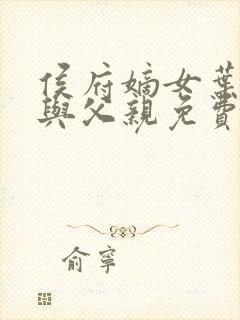 侯府嫡女葉
與父親免費
俞寧